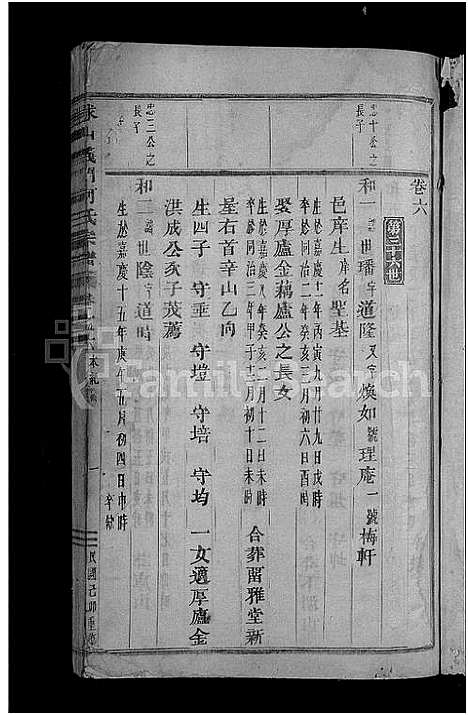 卷六
第三十六世
忠十公之
長子
和一諱世璠字道隆又字煥如號理庵一號梅軒
邑庠生庠名聖基
生於嘉慶十一年丙寅九月廿九日戌時
卒於同治二年癸亥三月初六日酉時
娶厚廬金藕廬公之長女
生於嘉慶八年癸亥二月十二日未時
卒於同治三年甲子十二月初十日未時
合葬畱雅堂新
屋右首辛山乙向
生四子 守垂 守塏 守培 守均 一女適厚廬金
洪成公亥子茂薦
忠二公之
長子
和二諱世陰字道時
生於嘉慶十五年庚午五月初四日申時
義門何氏宗譜
一
民國己卯重修
FamilySearch